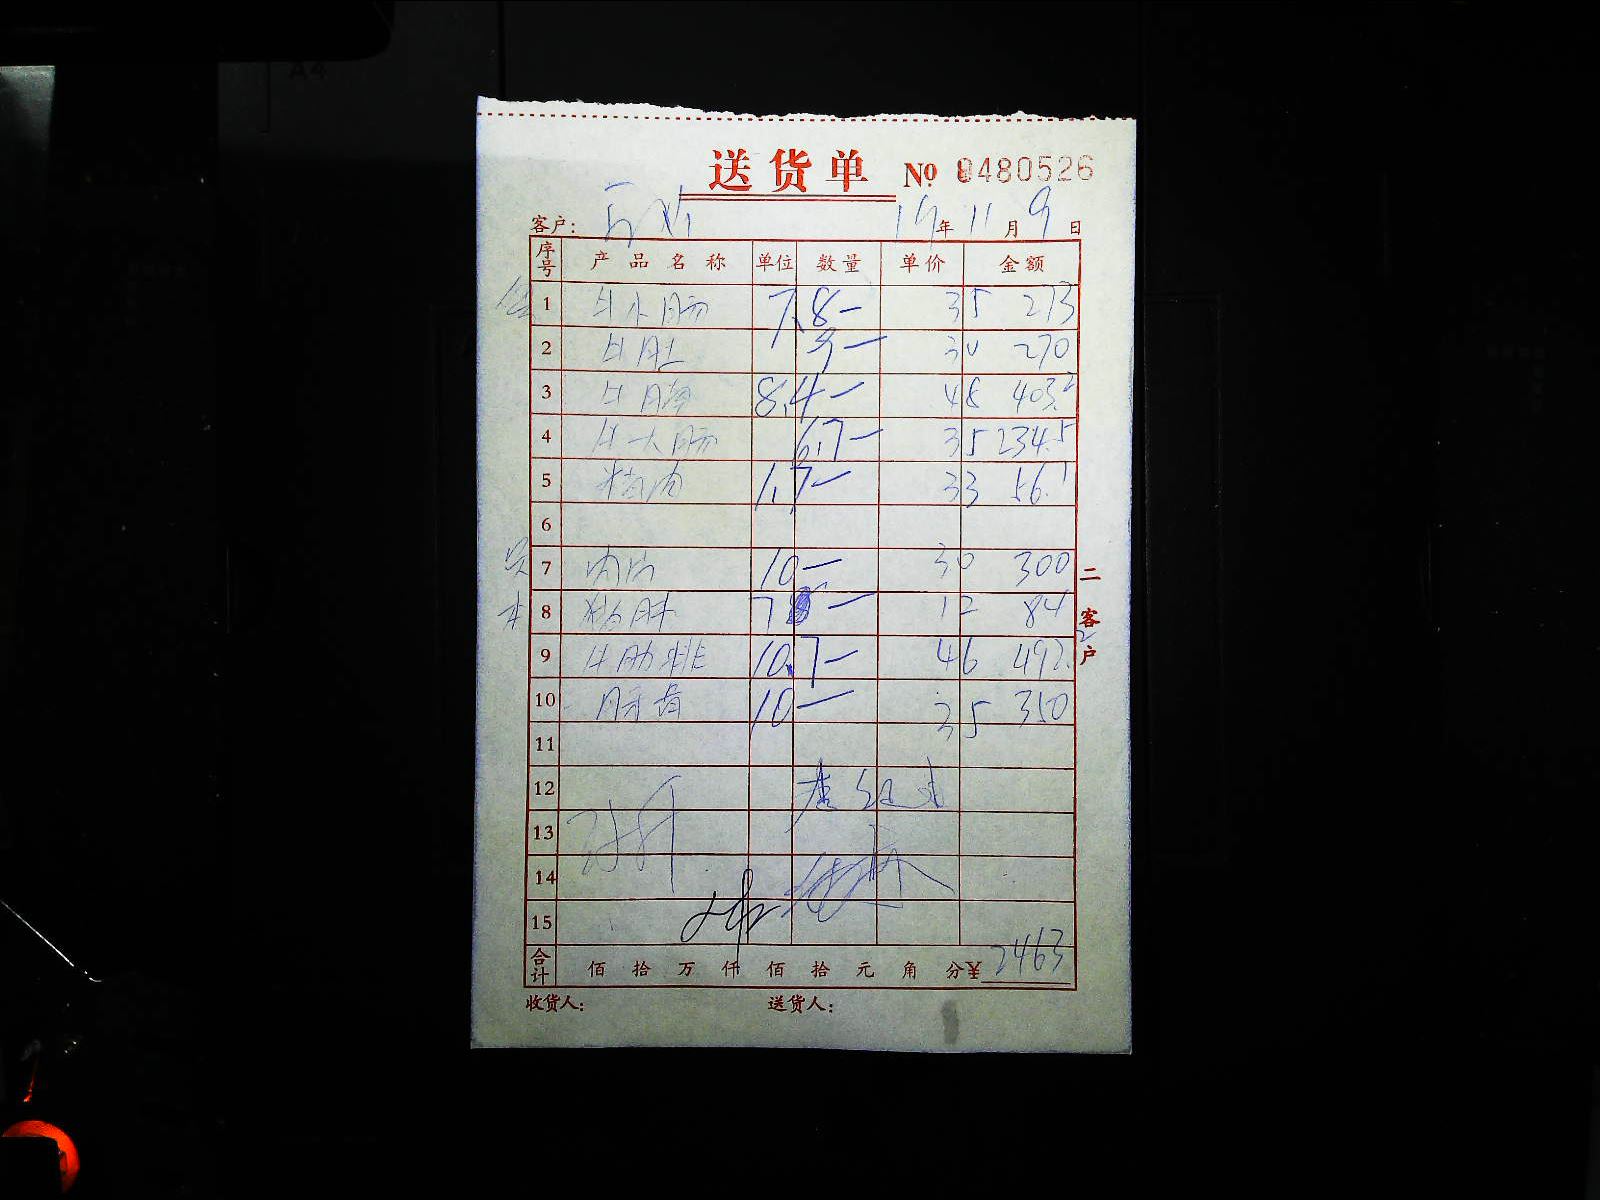 送货单 № 9480526
客户： 年 11 月 9 日
序号 产品名称 单位 数量 单价 金额
1 牛小肠 7.8一 35 273
2 牛肚 9一 30 270
3 牛胸 8.4一 48 403.2
4 牛大肠 6.7一 35 234.5
5 精肉 1.7一 33 56.1
6
7 10一 30 300
8 7 一 12 84
9 牛肋排 10.7一 46 492.2
10 10一 35 350
11
12
13
14
15
合计 佰 拾 万 仟 佰 拾 元 角 分 ¥ 2463
收货人： 送货人：
二客户